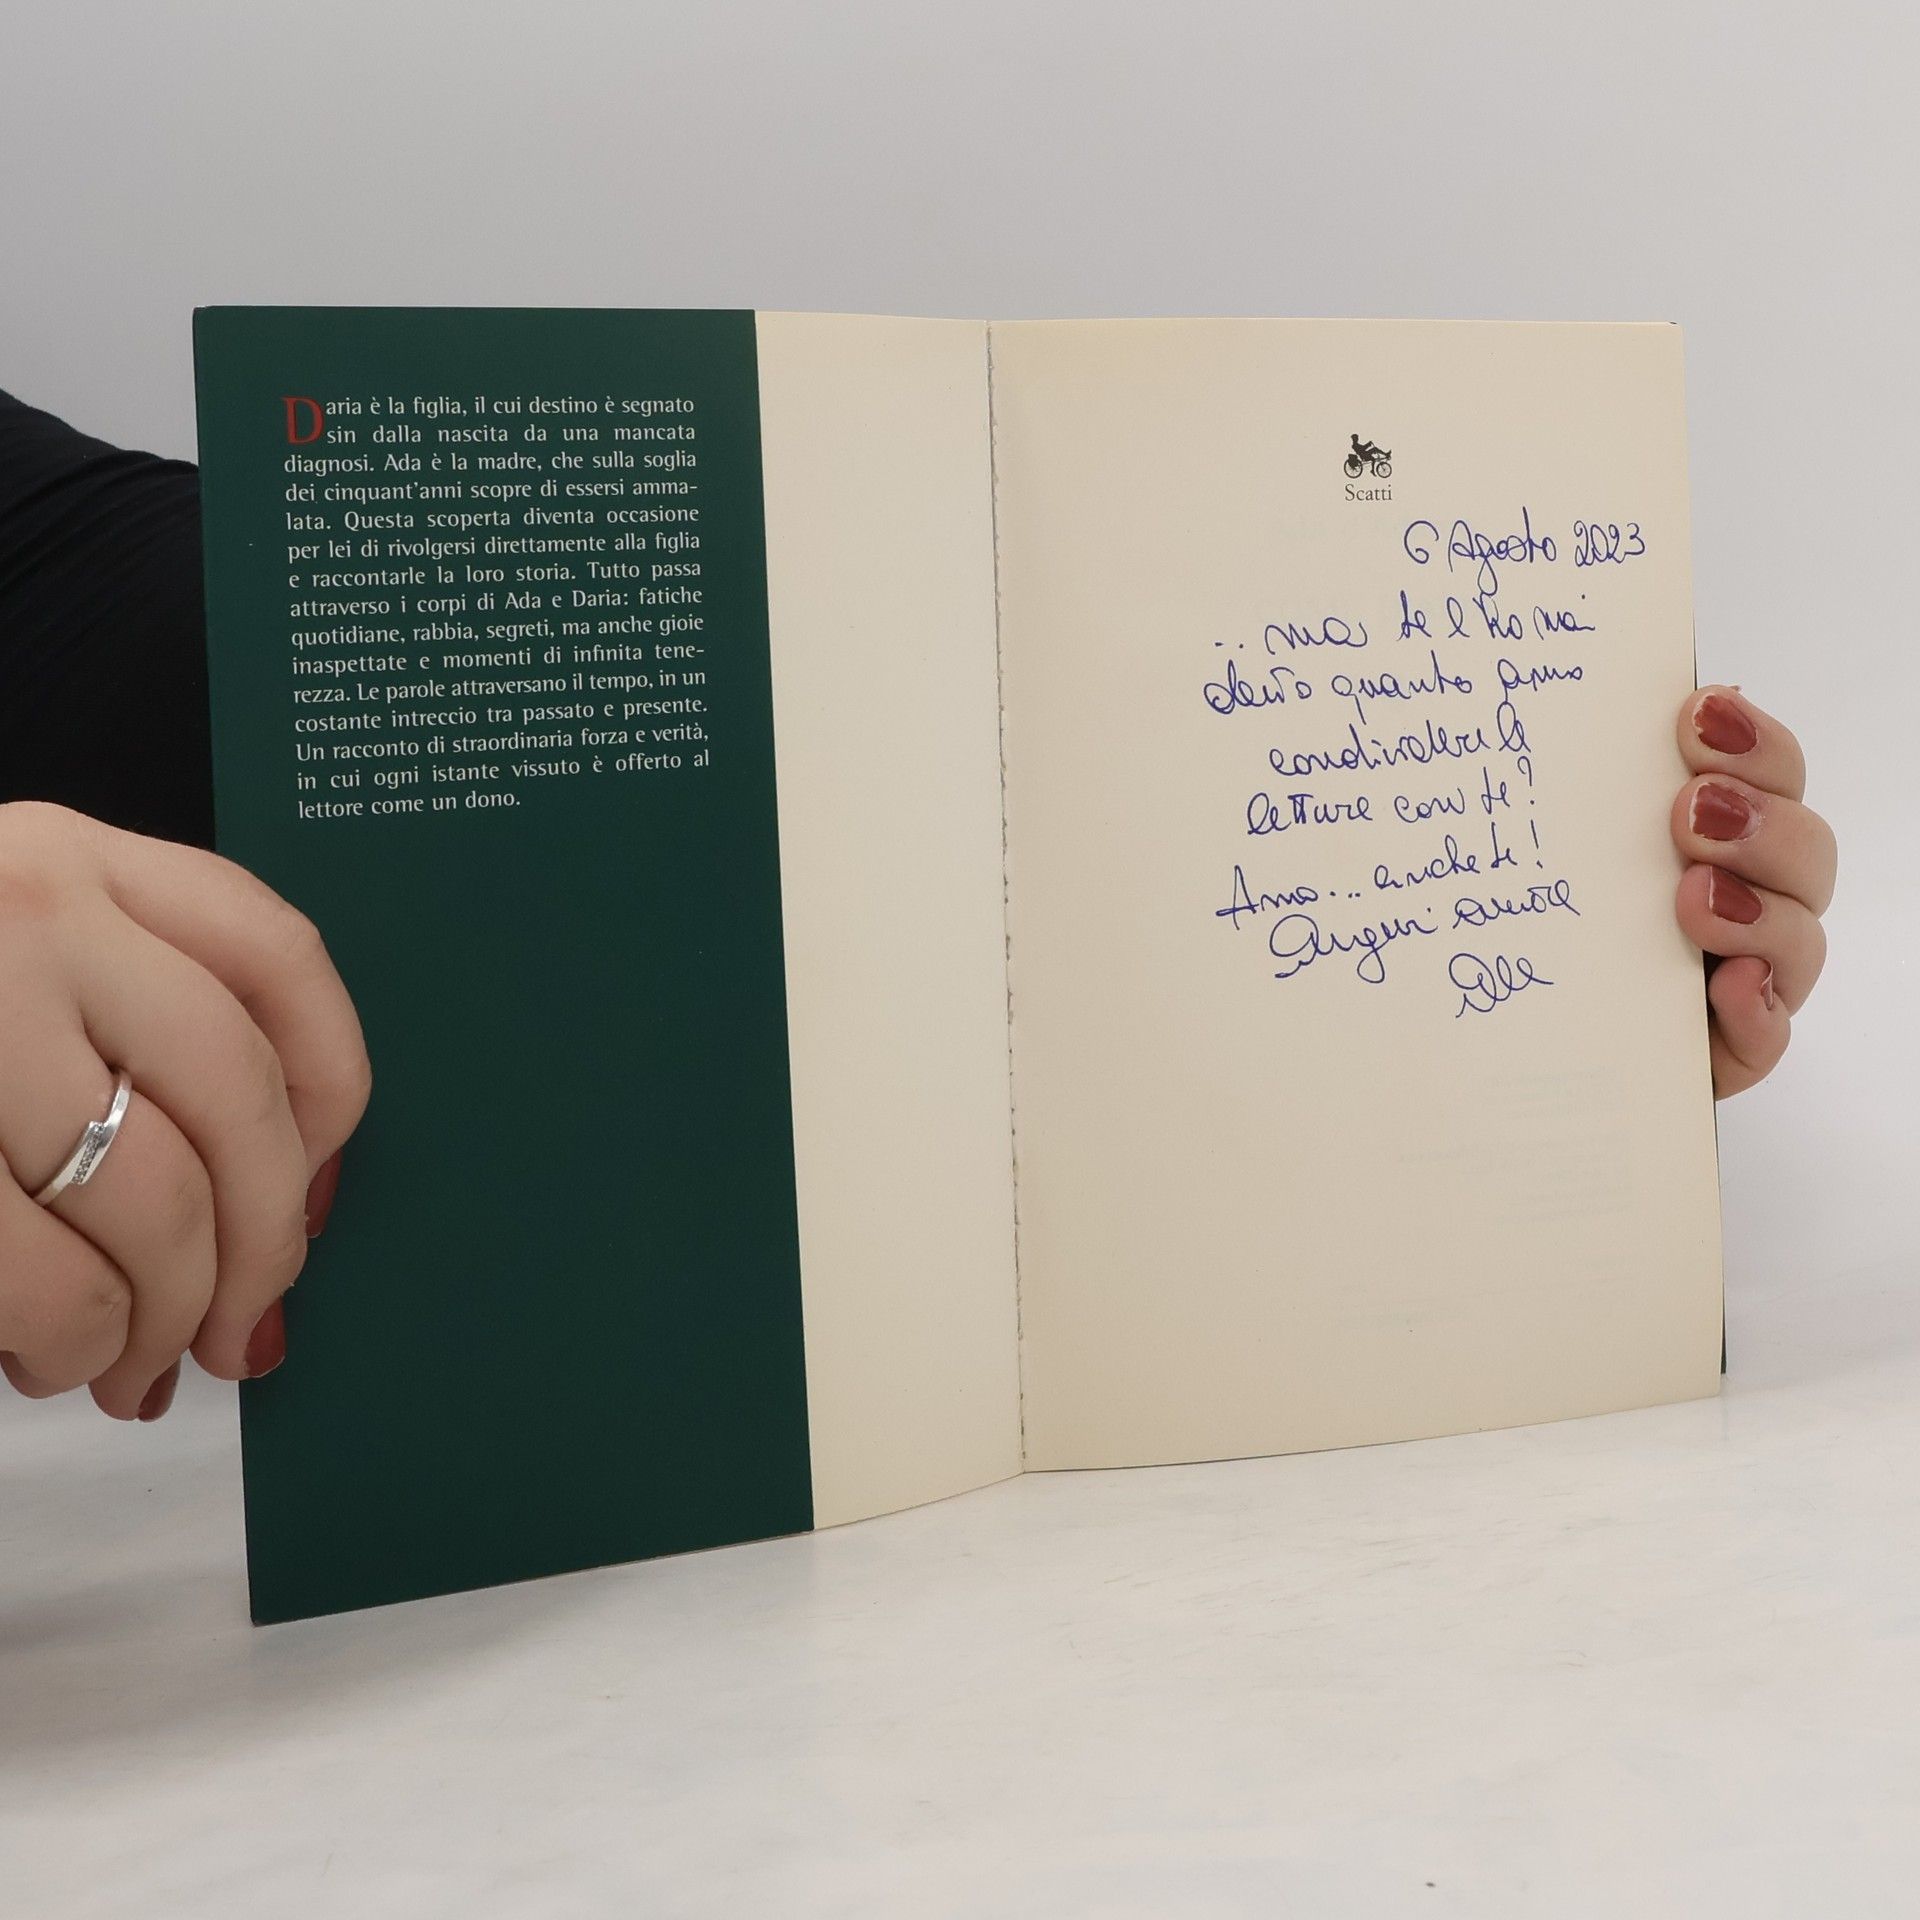 Daria è la figlia, il cui destino è segnato
sin dalla nascita da una mancata
diagnosi. Ada è la madre, che sulla soglia
dei cinquant'anni scopre di essersi amma-
lata. Questa scoperta diventa occasione
per lei di rivolgersi direttamente alla figlia
e raccontarle la loro storia. Tutto passa
attraverso i corpi di Ada e Daria: fatiche
quotidiane, rabbia, segreti, ma anche gioie
inaspettate e momenti di infinita tene-
rezza. Le parole attraversano il tempo, in un
costante intreccio tra passato e presente.
Un racconto di straordinaria forza e verità,
in cui ogni istante vissuto è offerto al
lettore come un dono.
Scatti
6 Agosto 2023
... ma te l'ho mai
detto quanto amo
condividere le
letture con te?
Amo... anche te!
Auguri amore